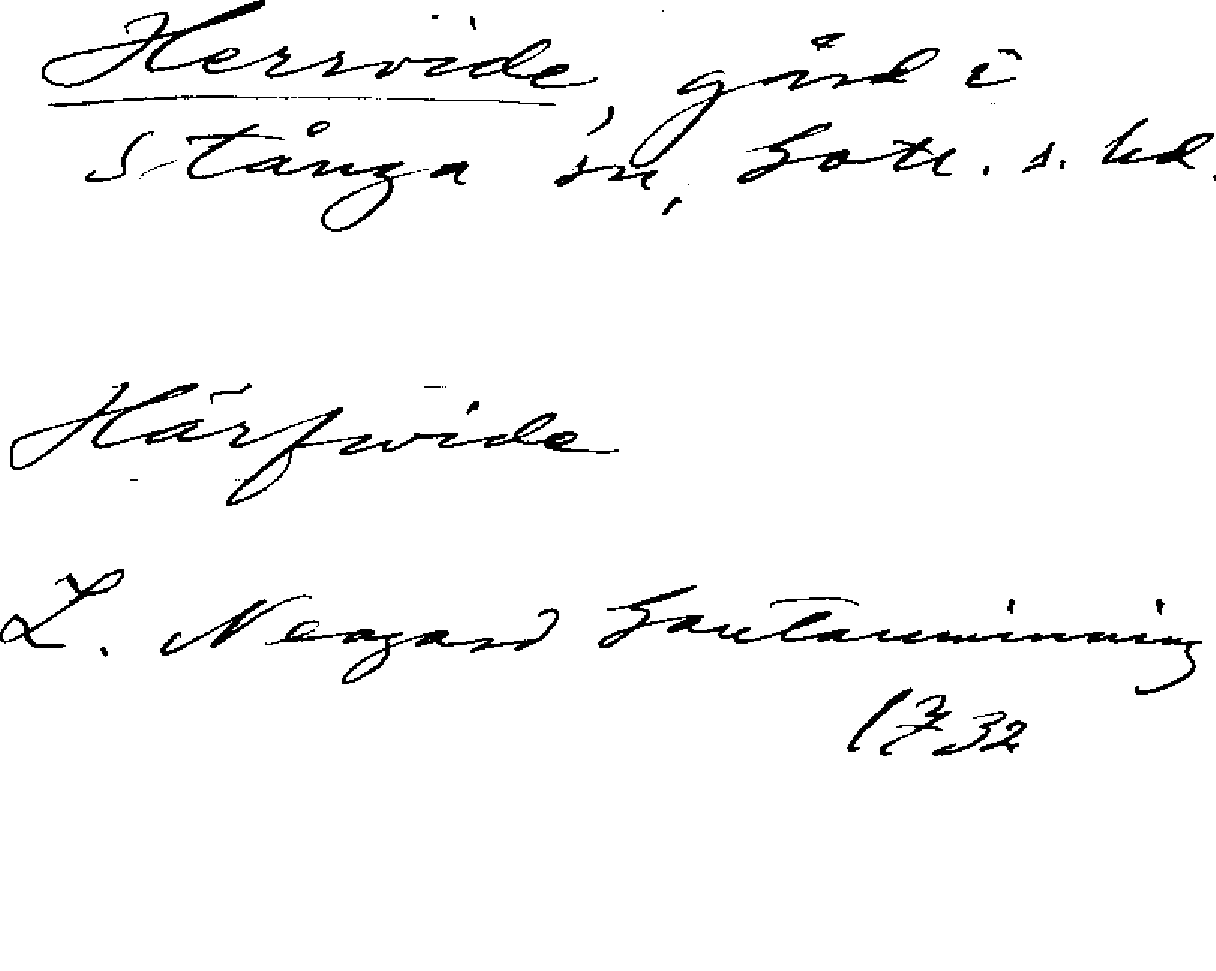 Herrvide, gård i
Stånga sn, Gotl. s. hd.
Härfwide
L. Neogard Gautauminning
1732